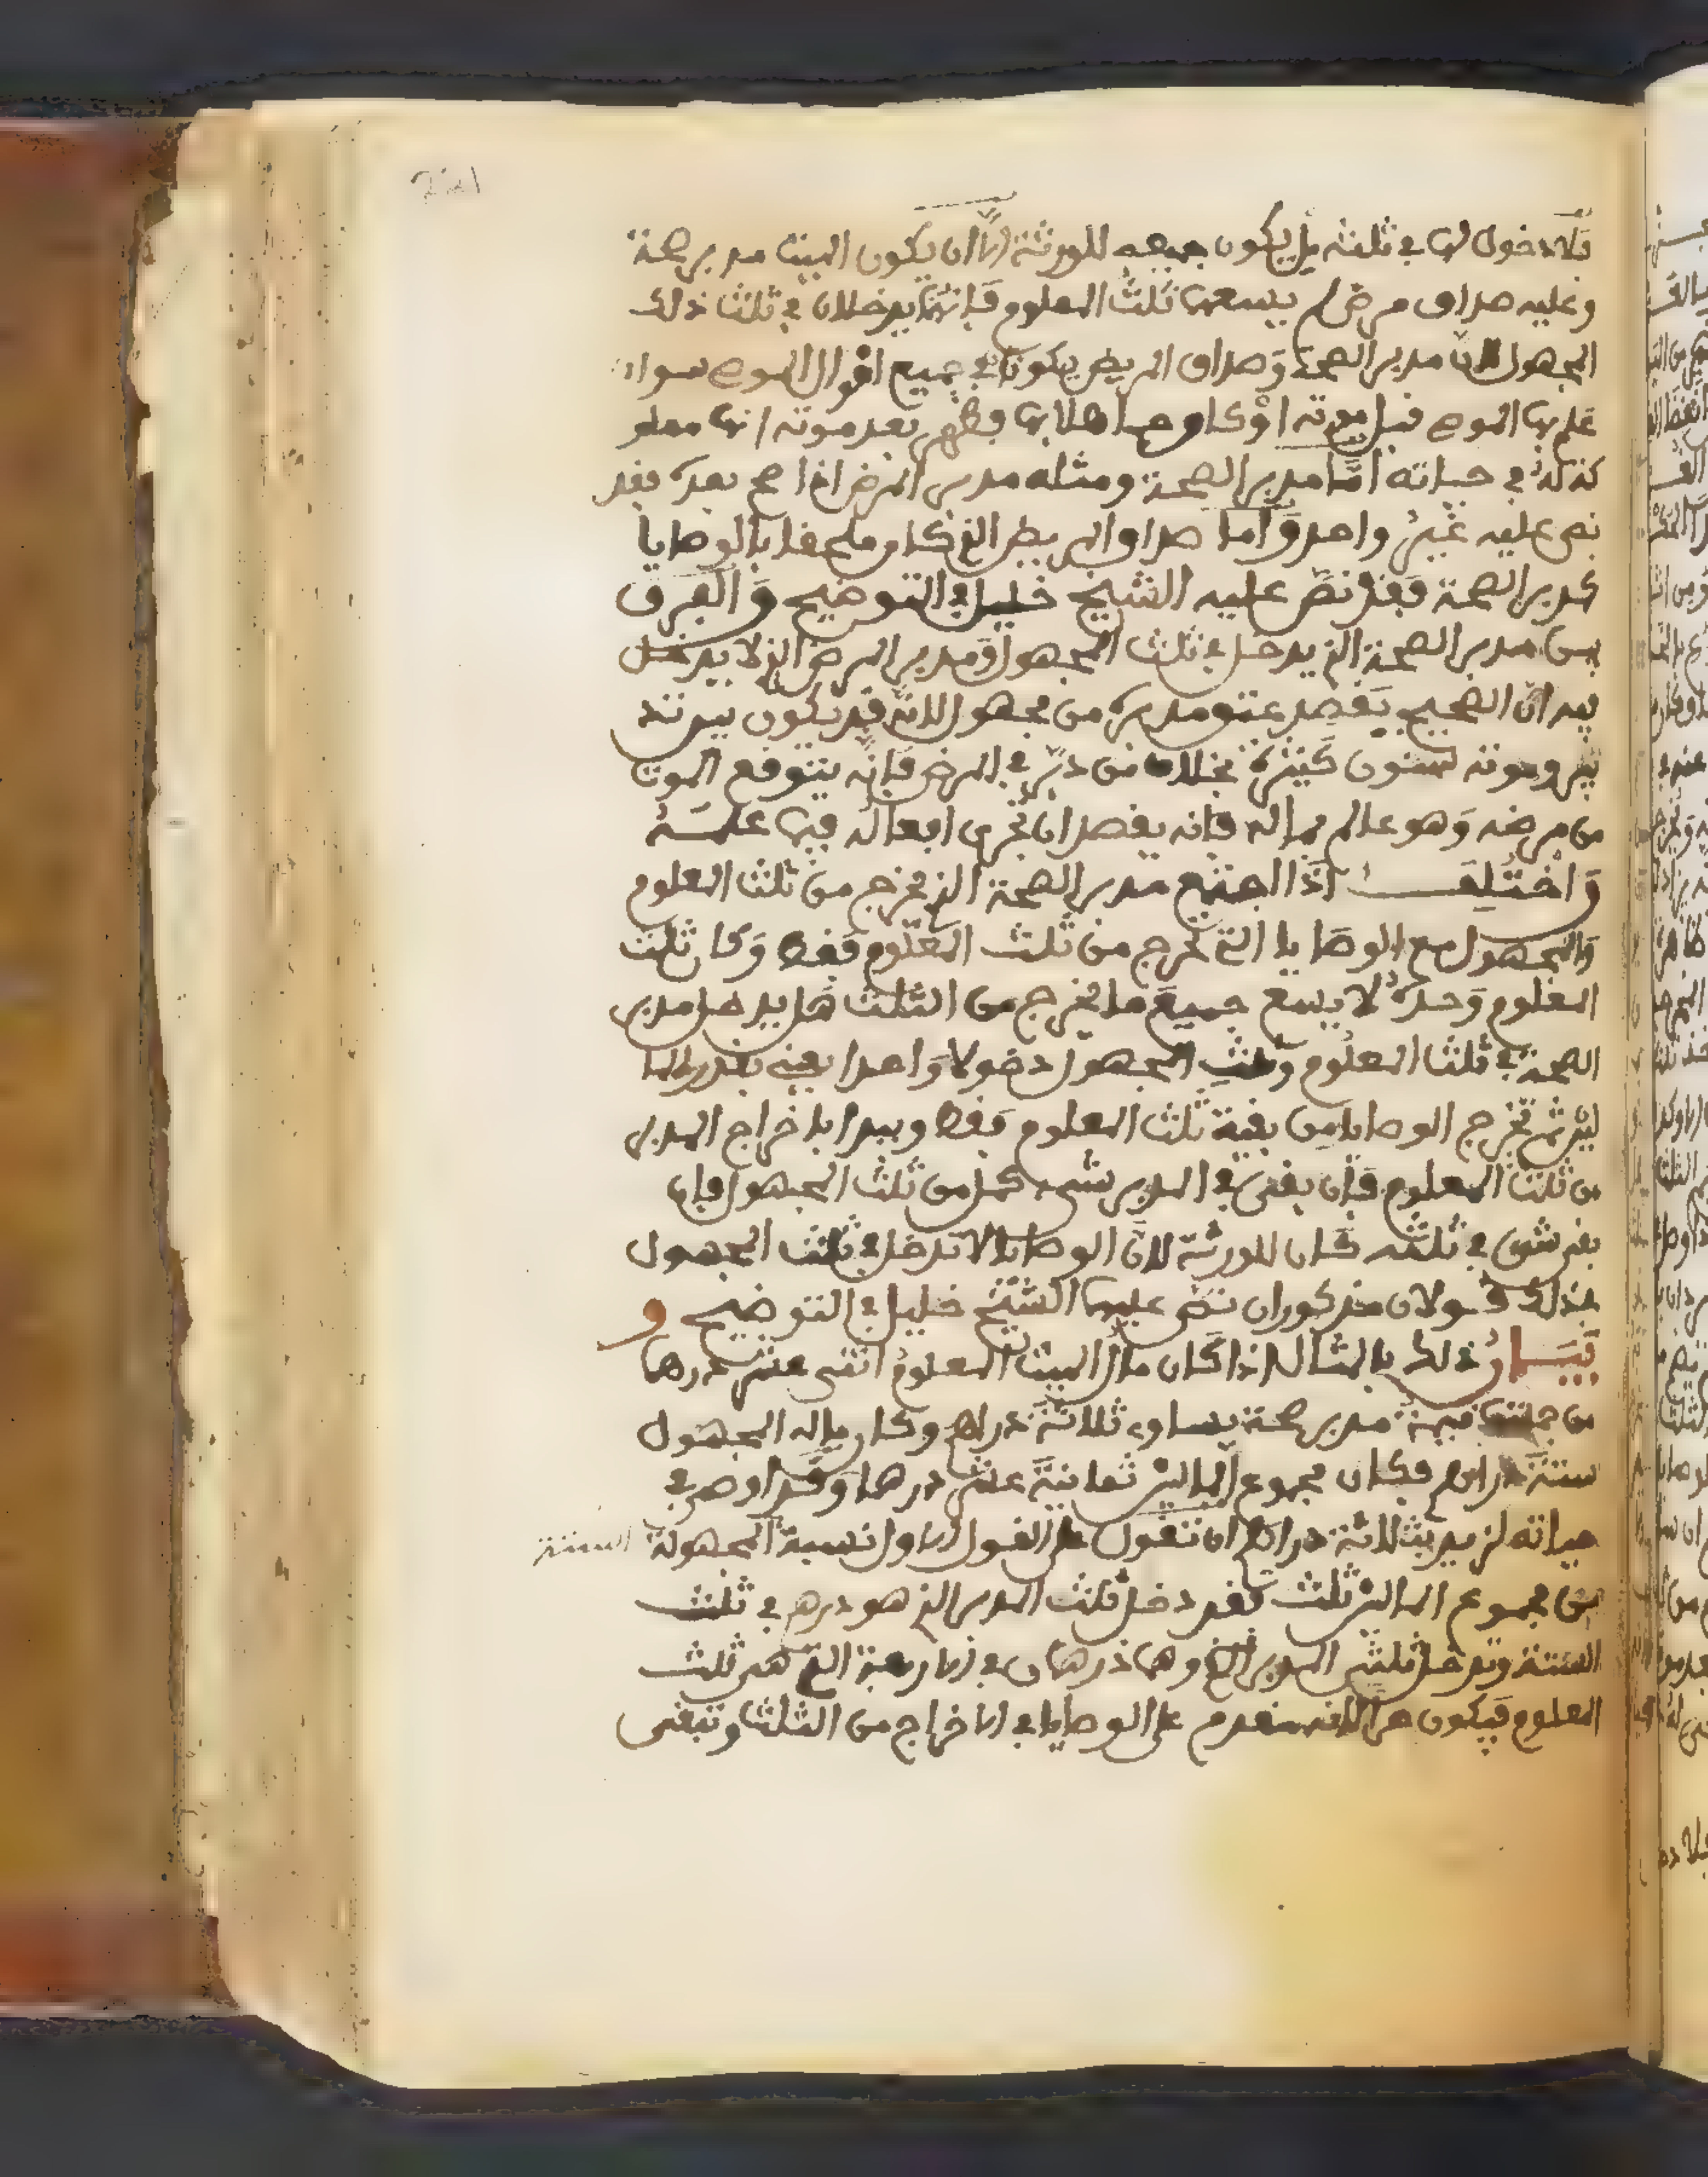 فلا دخول لها في ثلثه بل يكون جميعه للورثة الا ان يكون للميت مدبر صحة
وعليه صداق مرض لم يسعهما ثلث المعلوم فانهما يدخلان في ثلث ذلك
المجهول لان مدبر الصحة وصداق المريض يكونا في جميع اموال الموصي سواء
علم بها الموصي قبل موته او كان جاهلا بها فظهر بعد موته انها
كذلك في حياته اما مدبر الصحة ومثله مدبر المرض اذا صح بعده فقد
نص عليه غير واحد واما صداق المريض الذي كان ملحقا بالوصايا
كمدبر الصحة فقد نص عليه الشيخ خليل في التوضيح والفرق
بين مدبر الصحة الذي يدخل في ثلث المجهول ومدبر المرض الذي لا يدخل
فيه ان الصحيح يقصد عتق مدبره من مجهول لانه قد يكون بين تد
بيره وموته سنون كثيرة بخلاف من دبر في المرض فانه يتوقع الموت
من مرضه وهو عالم بماله فانه يقصد ان تجرى افعاله فيما علمه
واختلف اذا اجتمع مدبر الصحة الذي يخرج من ثلث المعلوم
والمجهول مع الوصايا التي تخرج من ثلث المعلوم فقط وكان ثلث
المعلوم وحده لا يسع جميع ما يخرج من الثلث هل يدخل مدبر
الصحة في ثلث المعلوم وثلث المجهول دخولا واحدا يعني بقدر الما
لين ثم تخرج الوصايا من بقية ثلث المعلوم فقط ويبدا باخراج المدبر
من ثلث المعلوم فان بقي في المدبر شيء كمل من ثلث المجهول فان
بقي شيء في ثلثه كان للورثة لان الوصايا لا تدخل في ثلث المجهول
في ذلك قولان مذكوران نص عليهما الشيخ خليل في التوضيح و
بيان ذلك بالمثال اذا كان مال الميت المعلوم اثنى عشر درهما
من جملتها قيمة مدبر صحة يساوي ثلاثة دراهم وكان ماله المجهول
ستة دراهم فكان مجموع المالين ثمانية عشر درهما وقد اوصى في
حياته لزيد بثلاثة دراهم ان تقول على القول الاول نسبة المجهولة الستة
من مجموع المالين ثلث فقد دخل ثلث المدبر الذي هو درهم في ثلث
الستة وتدخل ثلثي المدبر وهما درهمان في الاربعة التي هي ثلث
المعلوم فيكون لانه مقدم على الوصايا في الاخراج من الثلث وتبقى